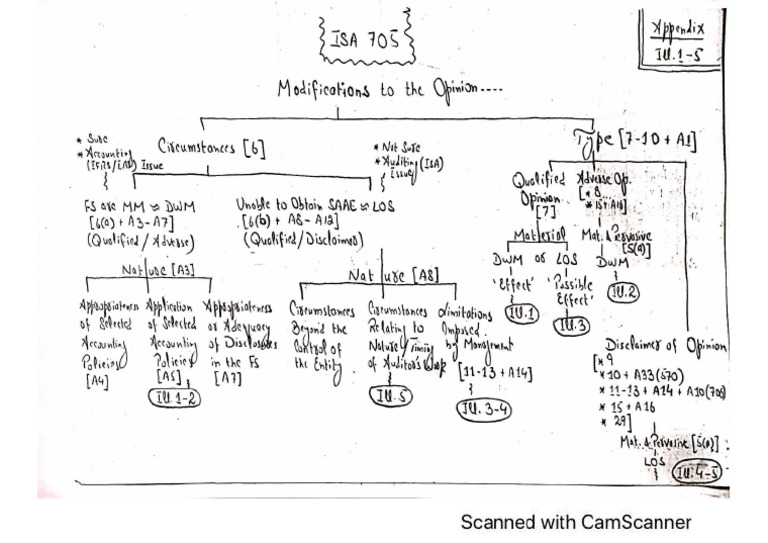 ISA 705
Appendix
Ill.1-5
Modifications to the Opinion....
* Sure
* Accounting
(IFRS/IAS) Issue
Circumstances [6]
* Not Sure
* Auditing (ISA)
Issue
Type [7-10 + A1]
FS are MM ≈ DWM
[6(a) + A3-A7]
(Qualified / Adverse)
Unable to Obtain SAAE ≈ LOS
[6(b) + A8-A12]
(Qualified/Disclaimer)
Qualified
Opinion
[7]
Adverse Op.
[* 8
* 15+A16]
Material
DWM or LOS
'Effect'
'Possible
Effect'
Ill.1
Ill.3
Mat. & Pervasive
[5(a)]
DWM
Ill.2
Nature [A3]
Nature [A8]
Appropriateness
of Selected
Accounting
Policies
[A4]
Application
of Selected
Accounting
Policies
[A5]
Ill.1-2
Appropriateness
or Adequacy
of Disclosures
in the FS
[A7]
Circumstances
Beyond the
Control of
the Entity
Circumstances
Relating to
Nature/Timing
of Auditor's Work
Ill.5
Limitations
Imposed
by Management
[11-13 + A14]
Ill. 3-4
Disclaimer of Opinion
[* 9
* 10 + A33(570)
* 11-13 + A14 + A10(705)
* 15 + A16
* 29]
Mat. & Pervasive [5(a)]
LOS
Ill.4-5
Scanned with CamScanner